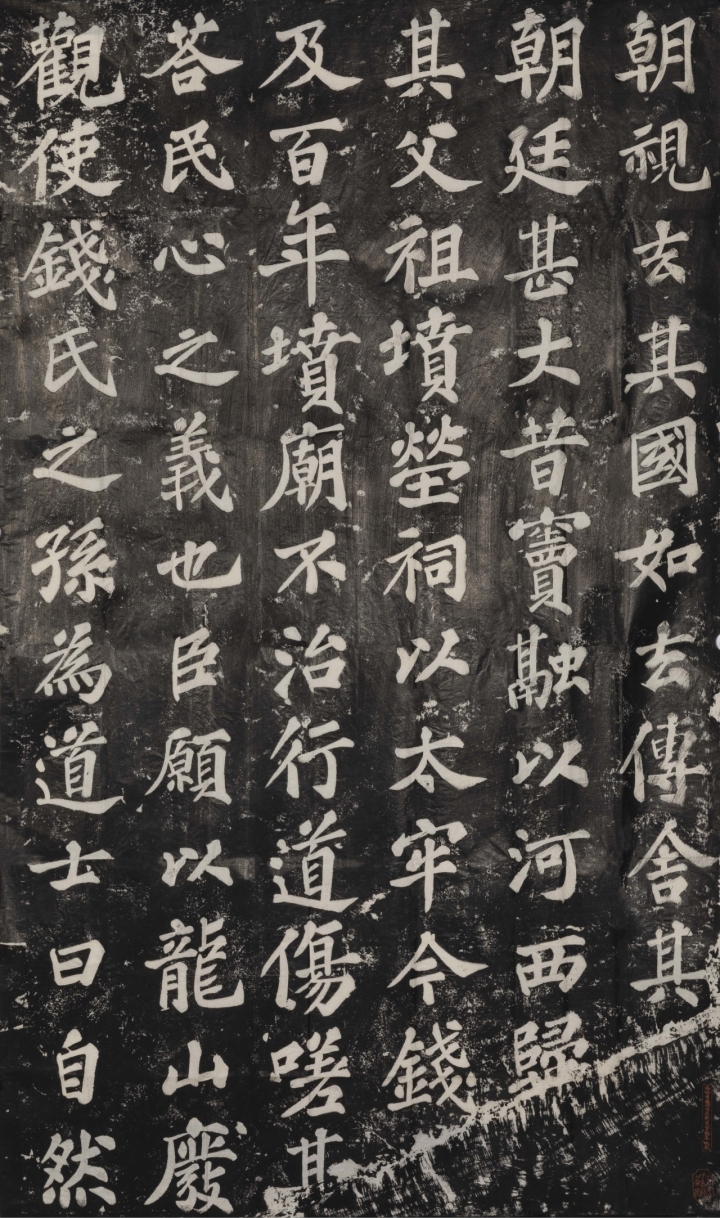 朝視去其國如去傳舍其
朝廷甚大昔竇融以河西歸
其父祖墳塋祠以太牢今錢
及百年墳廟不治行道傷嗟甚
荅民心之義也臣願以龍山廢
觀使錢氏之孫為道士曰自然